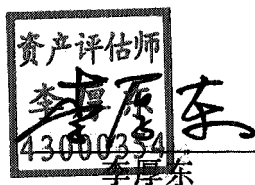 资产评估师
李厚东
43000354
李厚东
李厚东